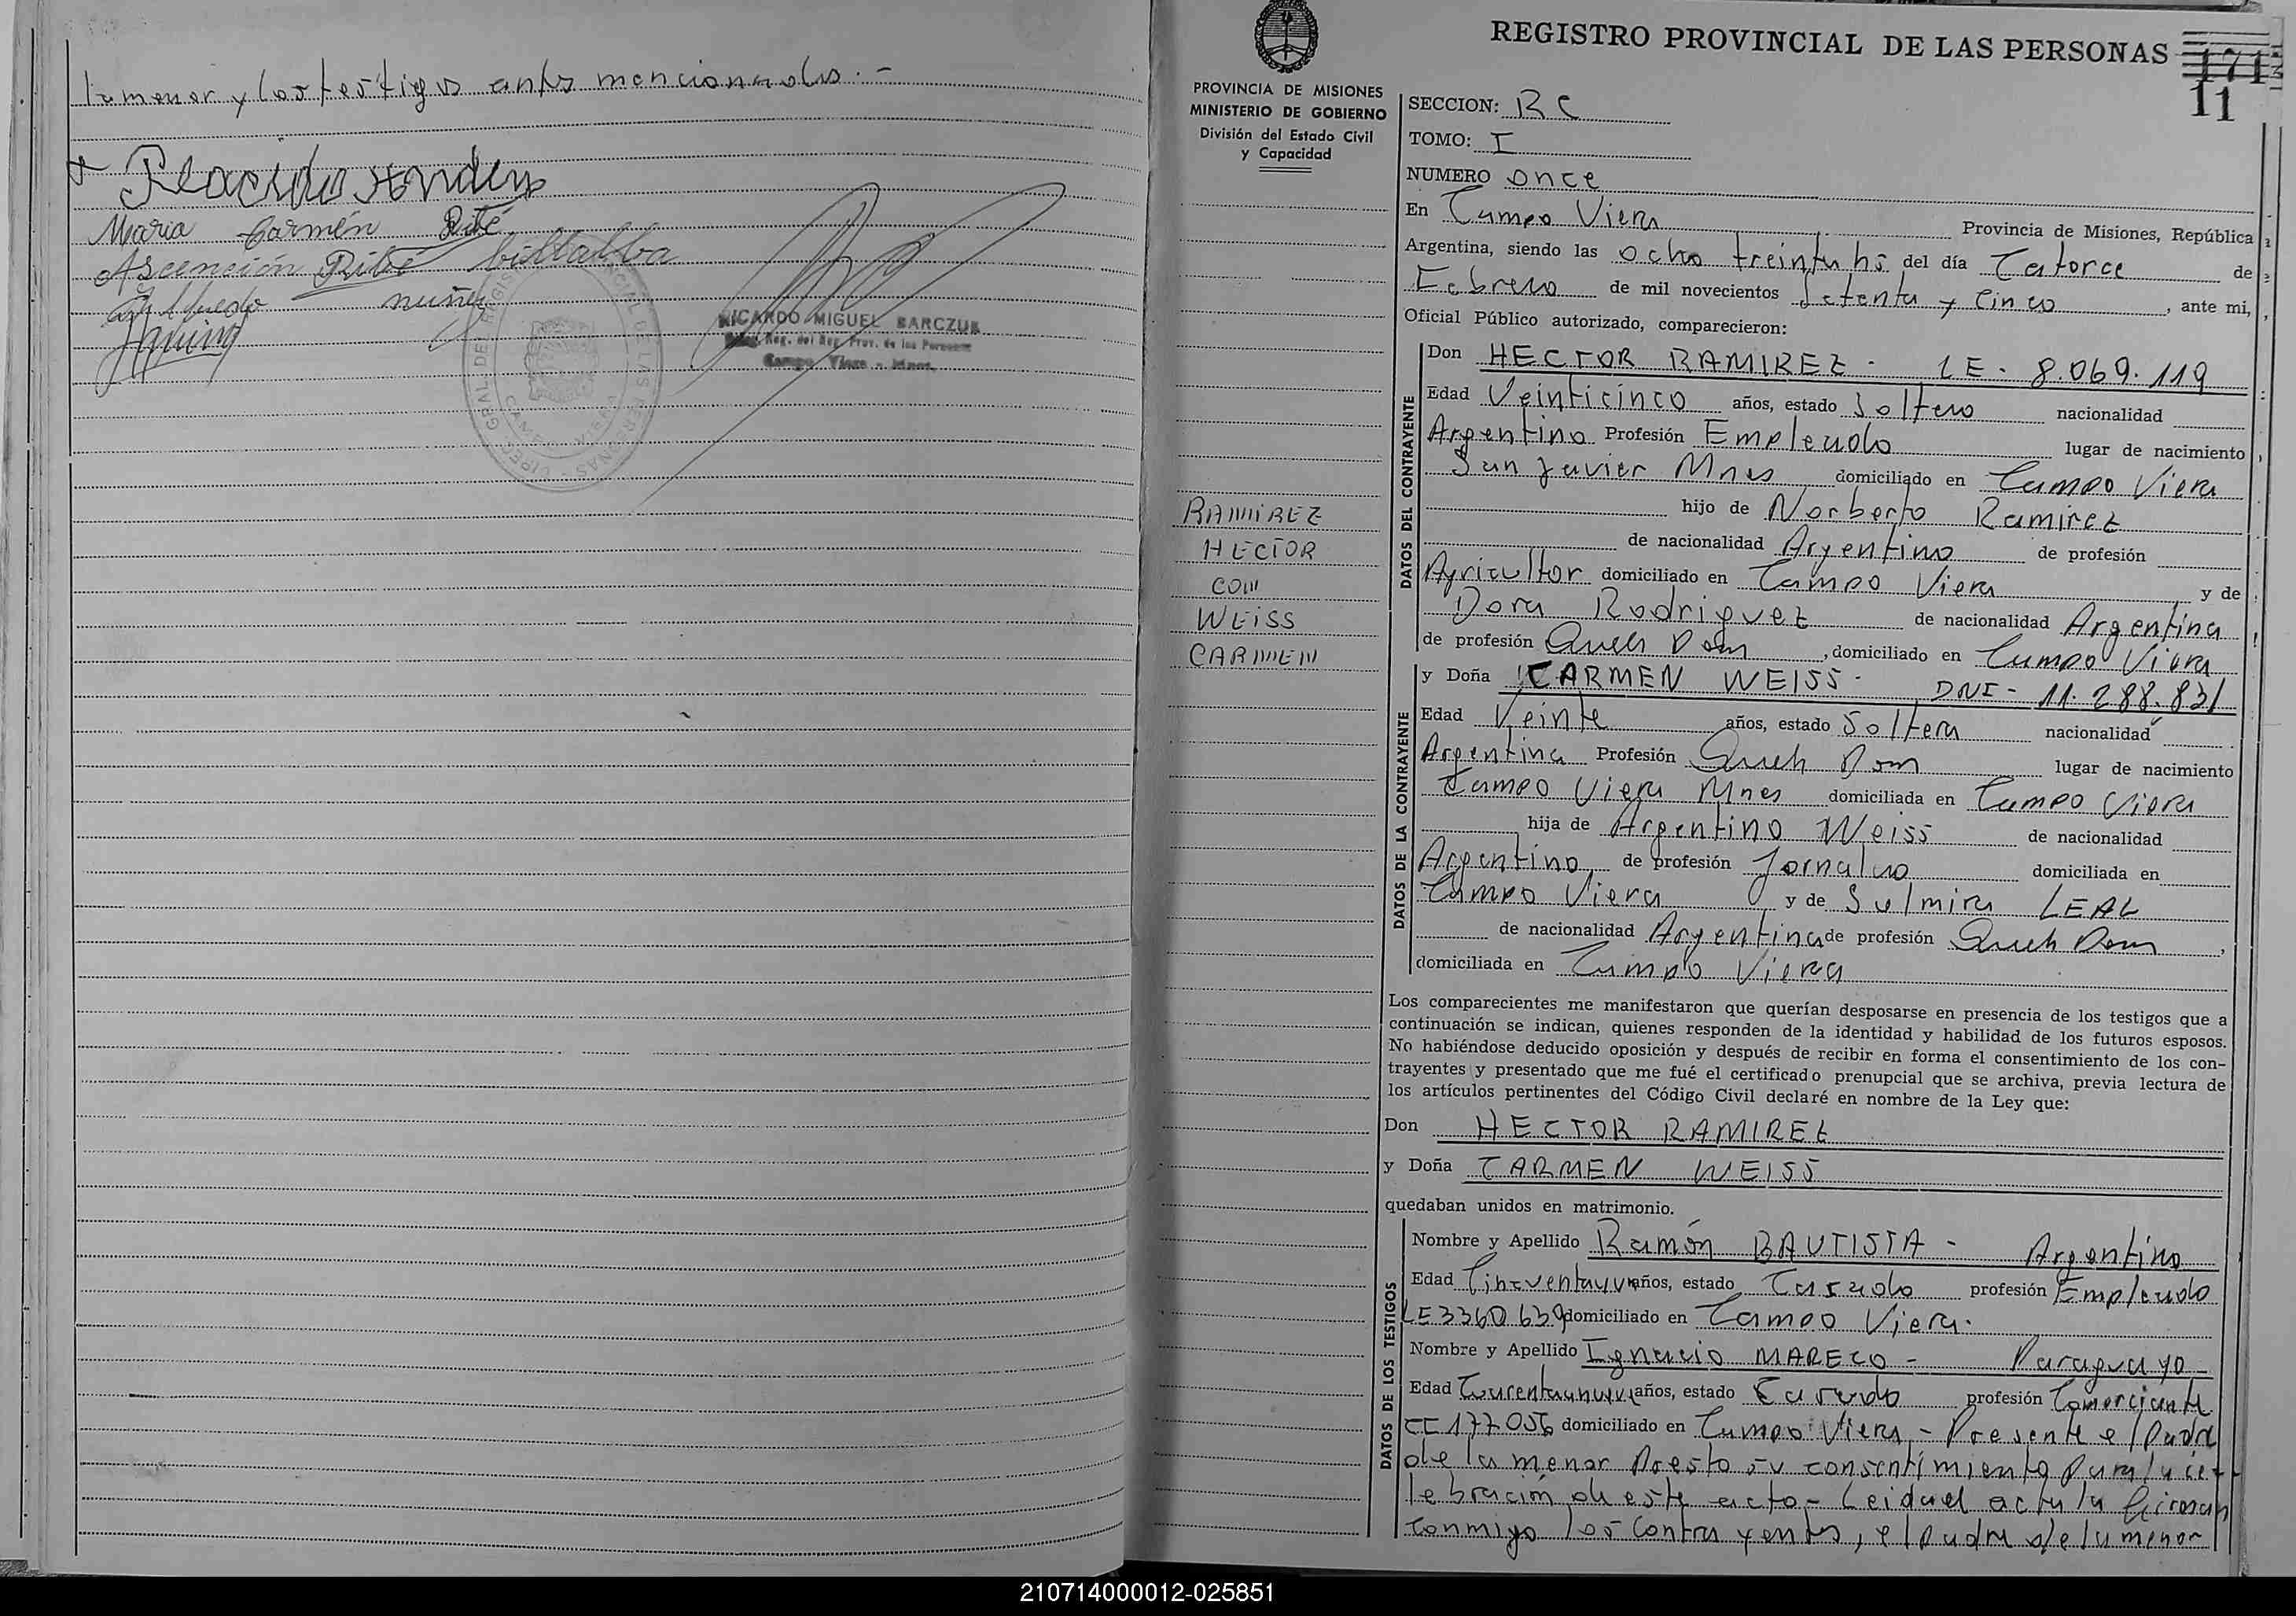 la menor y los testigos antes mencionados. -
Maria Carmén Ribé
Ascención Ribé billalba
nuñez
RICARDO MIGUEL BARCZUK
Reg. del Reg. Prov. de las Personas
Campo Viera - Mnes.
REGISTRO PROVINCIAL DE LAS PERSONAS
171
11
PROVINCIA DE MISIONES
MINISTERIO DE GOBIERNO
División del Estado Civil
y Capacidad
RAMIREZ
HECTOR
CON
WEISS
CARMEN
SECCION: RC
TOMO: I
NUMERO once
En Campo Viera Provincia de Misiones, República
Argentina, siendo las ocho treinta hs del día Catorce de
Febrero de mil novecientos Setenta y Cinco, ante mi,
Oficial Público autorizado, comparecieron:
DATOS DEL CONTRAYENTE
Don HECTOR RAMIREZ - LE - 8.069.119
Edad Veinticinco años, estado Soltero nacionalidad
Argentino Profesión Empleado lugar de nacimiento
San Javier Mnes domiciliado en Campo Viera
hijo de Norberto Ramirez
de nacionalidad Argentino de profesión
Agricultor domiciliado en Campo Viera y de
Dora Rodriguez de nacionalidad Argentina
de profesión Queh Dom, domiciliado en Campo Viera
DATOS DE LA CONTRAYENTE
y Doña CARMEN WEISS - DNI - 11.288.831
Edad Veinte años, estado Soltera nacionalidad
Argentina Profesión Queh Dom lugar de nacimiento
Campo Viera Mnes domiciliada en Campo Viera
hija de Argentino Weiss de nacionalidad
Argentino de profesión Jornalero domiciliada en
Campo Viera y de Sulmira LEAL
de nacionalidad Argentina de profesión Queh Dom,
domiciliada en Campo Viera
Los comparecientes me manifestaron que querían desposarse en presencia de los testigos que a
continuación se indican, quienes responden de la identidad y habilidad de los futuros esposos.
No habiéndose deducido oposición y después de recibir en forma el consentimiento de los con-
trayentes y presentado que me fué el certificado prenupcial que se archiva, previa lectura de
los artículos pertinentes del Código Civil declaré en nombre de la Ley que:
Don HECTOR RAMIREZ
y Doña CARMEN WEISS
quedaban unidos en matrimonio.
DATOS DE LOS TESTIGOS
Nombre y Apellido Ramón BAUTISTA - Argentino
Edad Cincuentayun años, estado Casado profesión Empleado
LE 3360639 domiciliado en Campo Viera.
Nombre y Apellido Ignacio MARECO - Paraguayo
Edad Cuarentaynueve años, estado Casado profesión Comerciante
CE 177.056 domiciliado en Campo Viera - Presente el Padre
de la menor Presto su consentimiento Para la ce-
lebración de este acto - Leida el acta la firman
Conmigo los Contrayentes, el padre de la menor
210714000012-025851